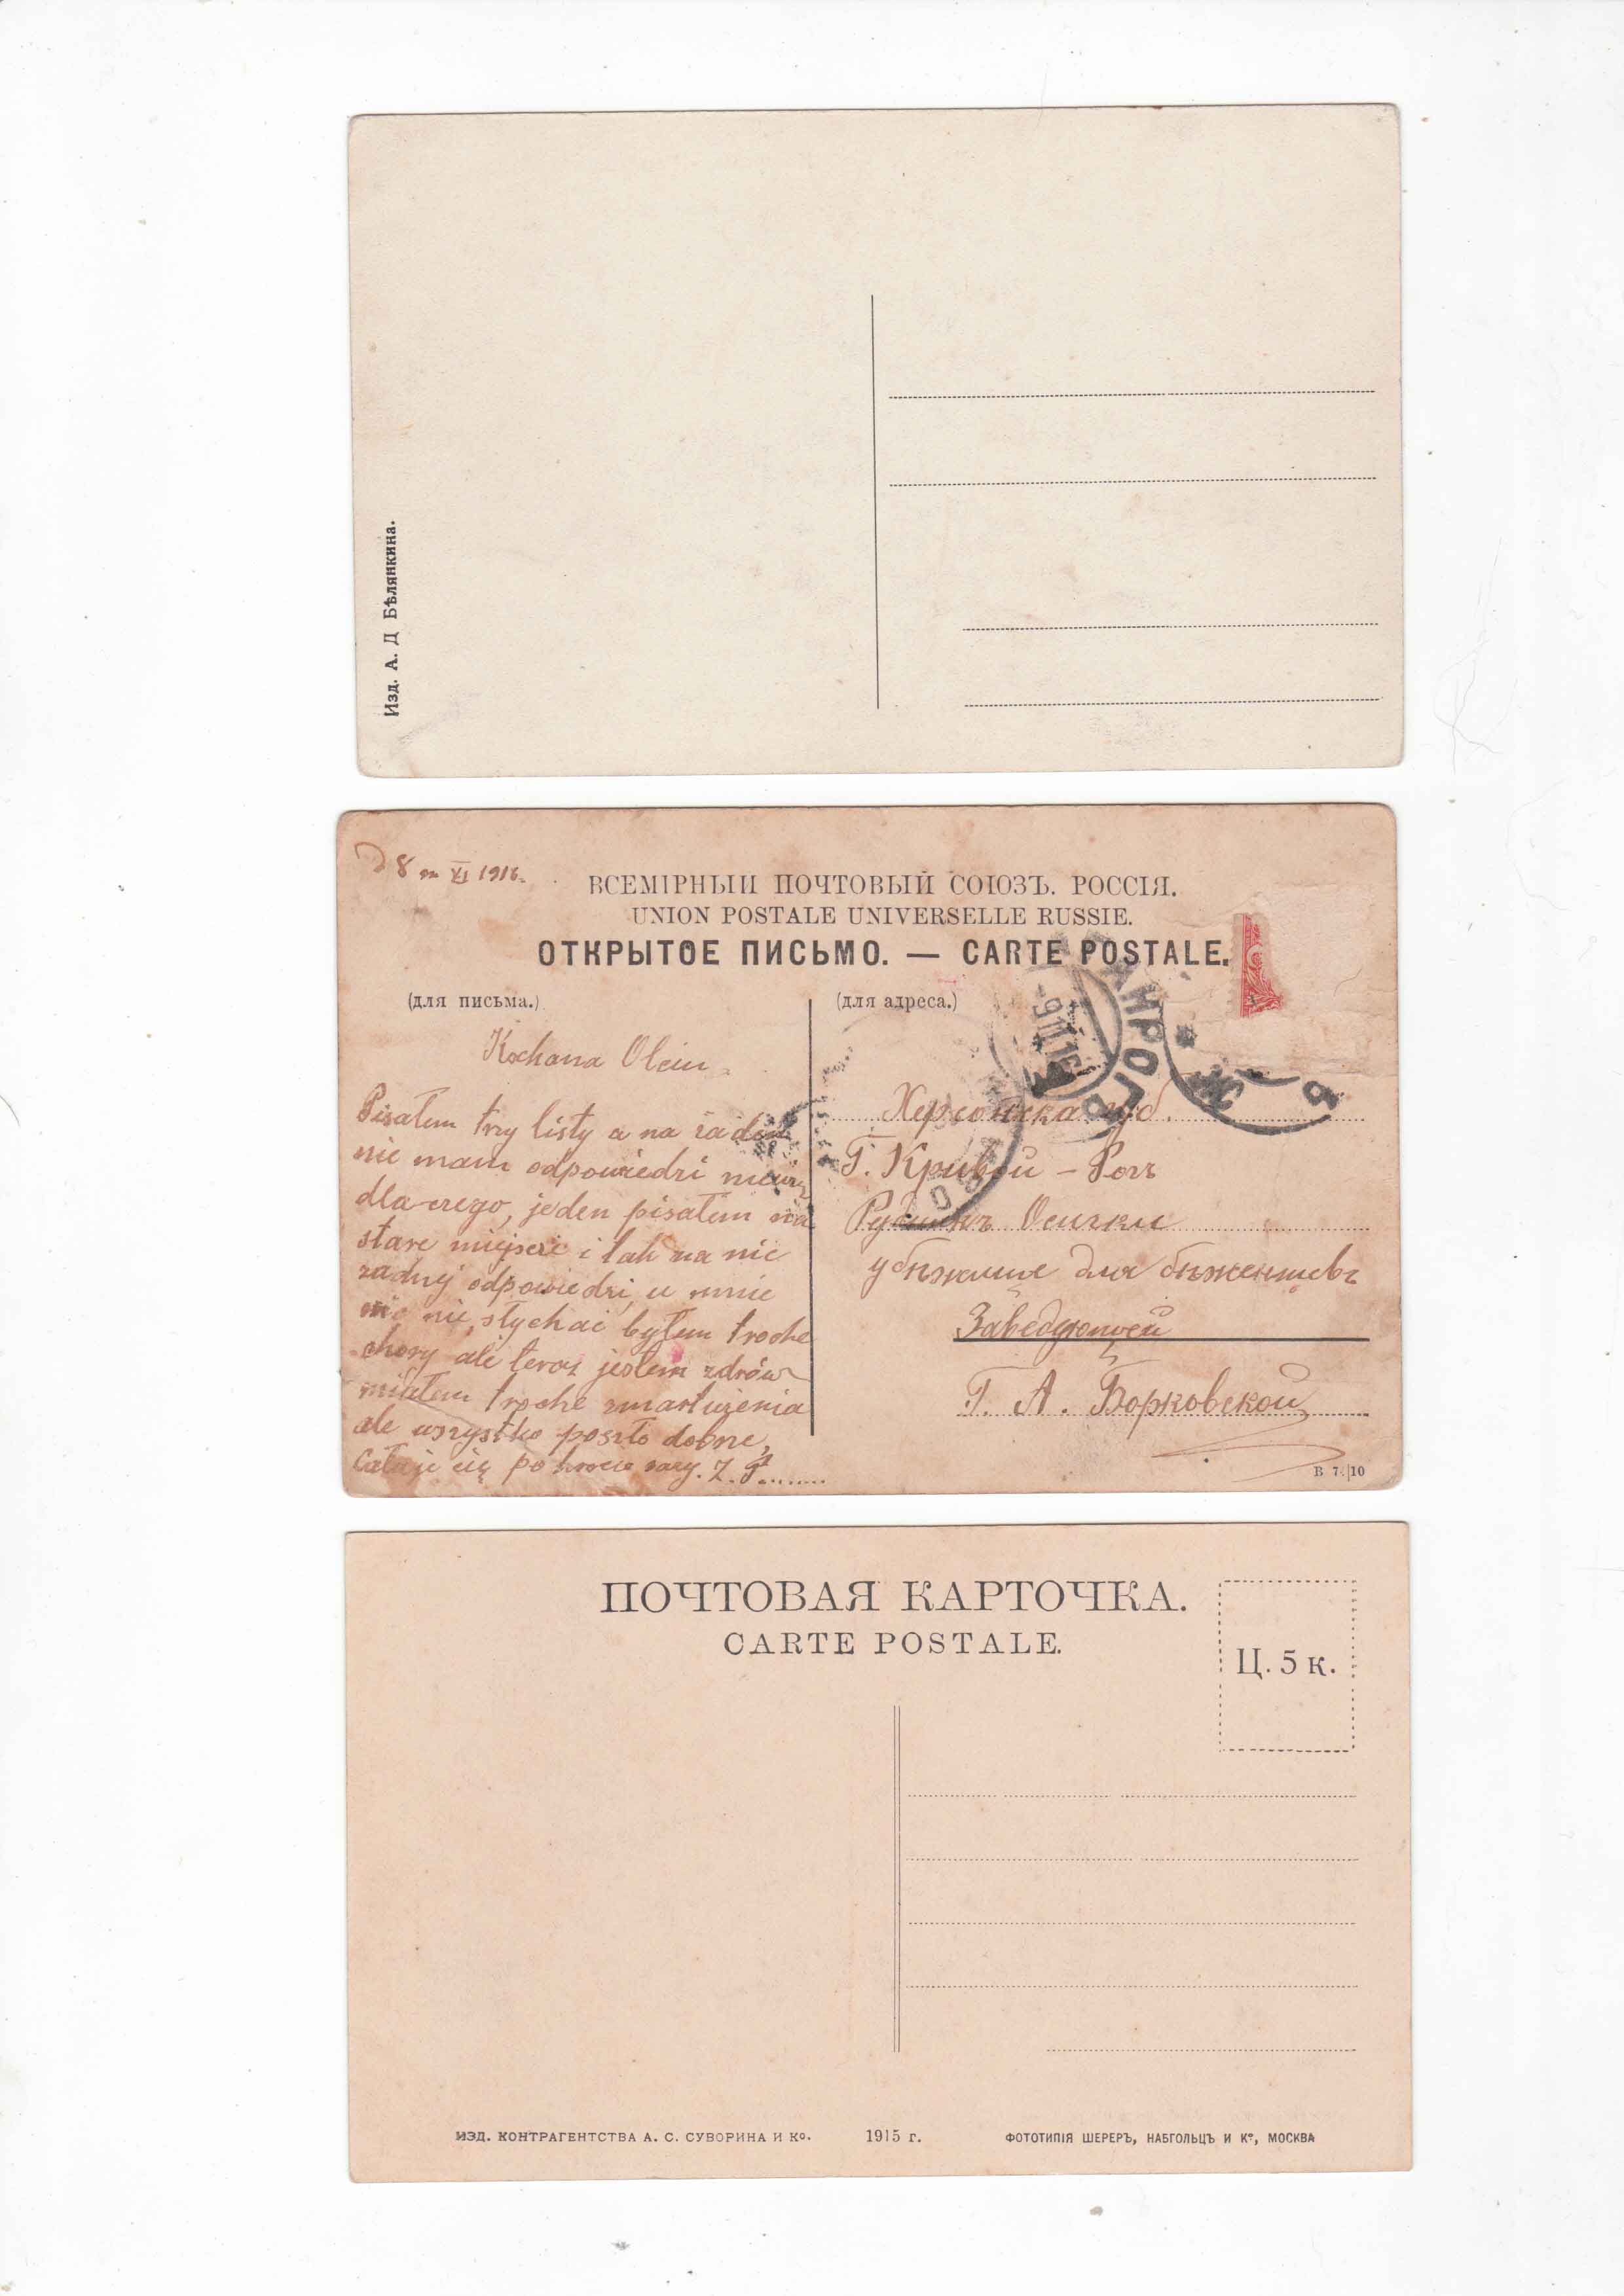 Изд. А. Д Бѣлянкина.
8 m XI 1916.
ВСЕМІРНЫЙ ПОЧТОВЫЙ СОЮЗЪ. РОССІЯ.
UNION POSTALE UNIVERSELLE RUSSIE.
ОТКРЫТОЕ ПИСЬМО. — CARTE POSTALE.
(для письма.)
Kochana Olciu
Pisałem trzy listy a na żaden
nie mam odpowiedzi niewiem
dla czego, jeden pisałem na
stare miejsce i tak na nie
żadnej odpowiedzi, u mnie
nic nie słychać byłem troche
chory ale teraz jestem zdrów
miałem troche zmartwienia
ale wszystko poszło dobrze,
Całuje cię po kroć razy. Z. P........
(для адреса.)
Херсонска губ.
Г. Кривой - Рогъ
Рудникъ
убѣжище для бѣженцевъ
Заведующей
Г. А. Борковской
В 7. 10
ПОЧТОВАЯ КАРТОЧКА.
CARTE POSTALE.
Ц. 5 к.
ИЗД. КОНТРАГЕНТСТВА А. С. СУВОРИНА И Кº. 1915 г. ФОТОТИПІЯ ШЕРЕРЪ, НАБГОЛЬЦЪ И Кº, МОСКВА